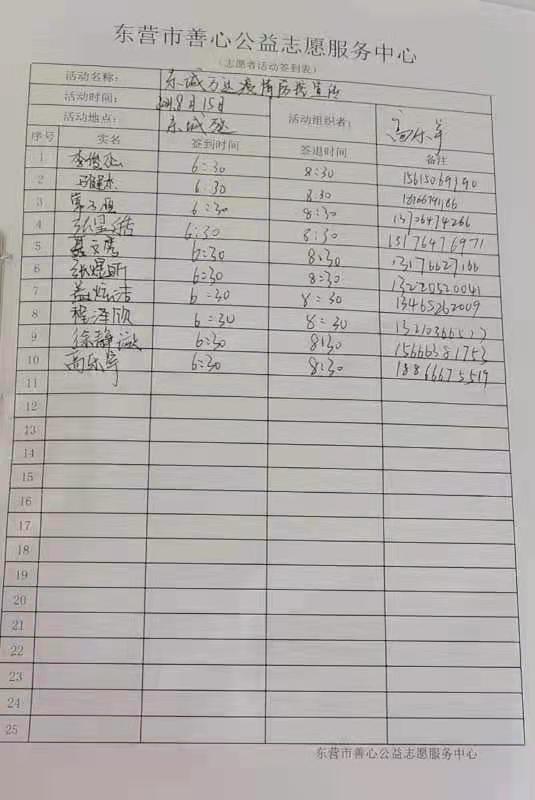 东营市善心公益志愿服务中心
（志愿者活动签到表）
活动名称： 东城万达疫情防控宣传
活动时间： 8月15日 活动组织者： 高乐宇
活动地点： 东城
序号 实名 签到时间 签退时间 备注
1 李俊 6:30 8:30 15615069190
2 6:30 8:30
3 6:30 8:30 13706474266
4 张呈皓 6:30 8:30 13176476971
5 聂文房 6:30 8:30 13176627166
6 张煜昕 6:30 8:30 13220520041
7 盖炫洁 6:30 8:30 13465262009
8 程泽欣 6:30 8:30
9 徐静 6:30 8:30 15666381753
10 高乐宇 6:30 8:30 18866675519
11
12
13
14
15
16
17
18
19
20
21
22
23
24
25
东营市善心公益志愿服务中心